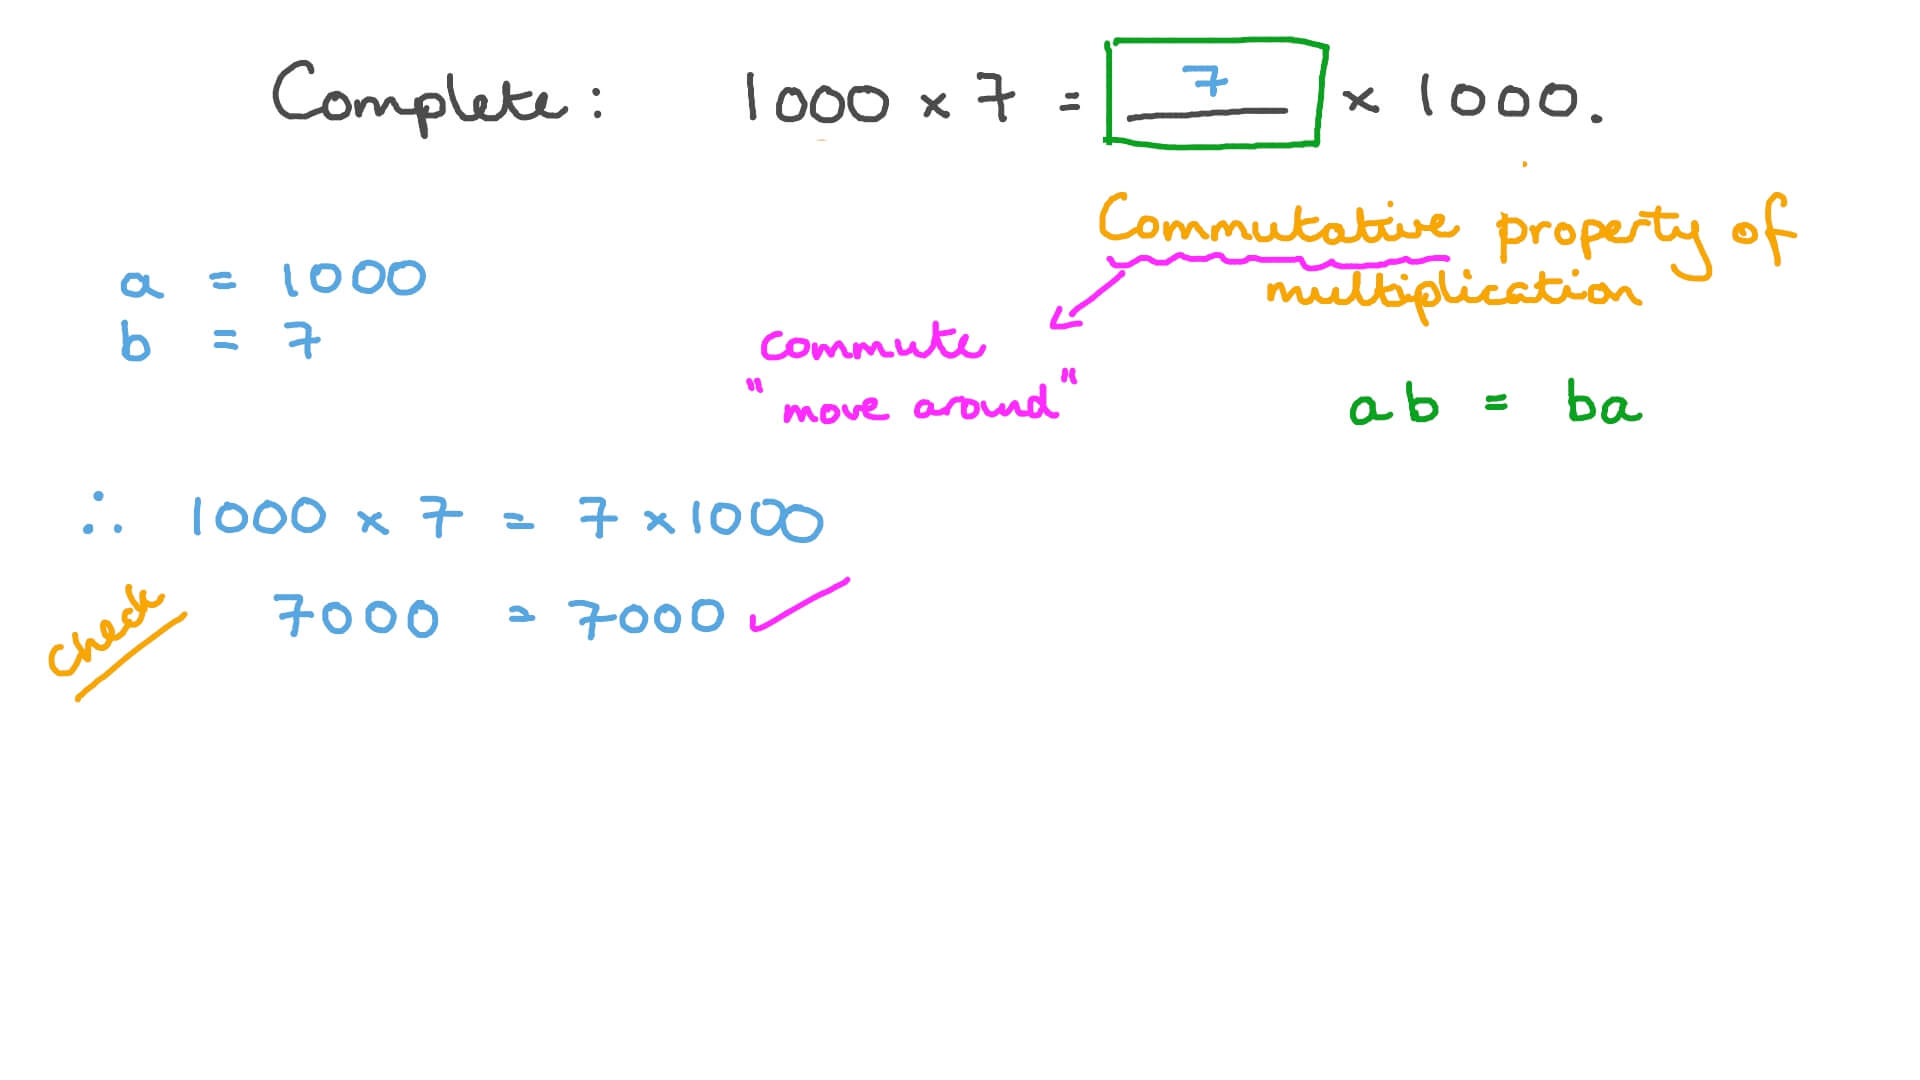 Complete: 1000 × 7 = 7 × 1000.
Commutative property of
multiplication
a = 1000
b = 7
commute
"move around"
ab = ba
∴ 1000 × 7 = 7 × 1000
check 7000 = 7000 ✓